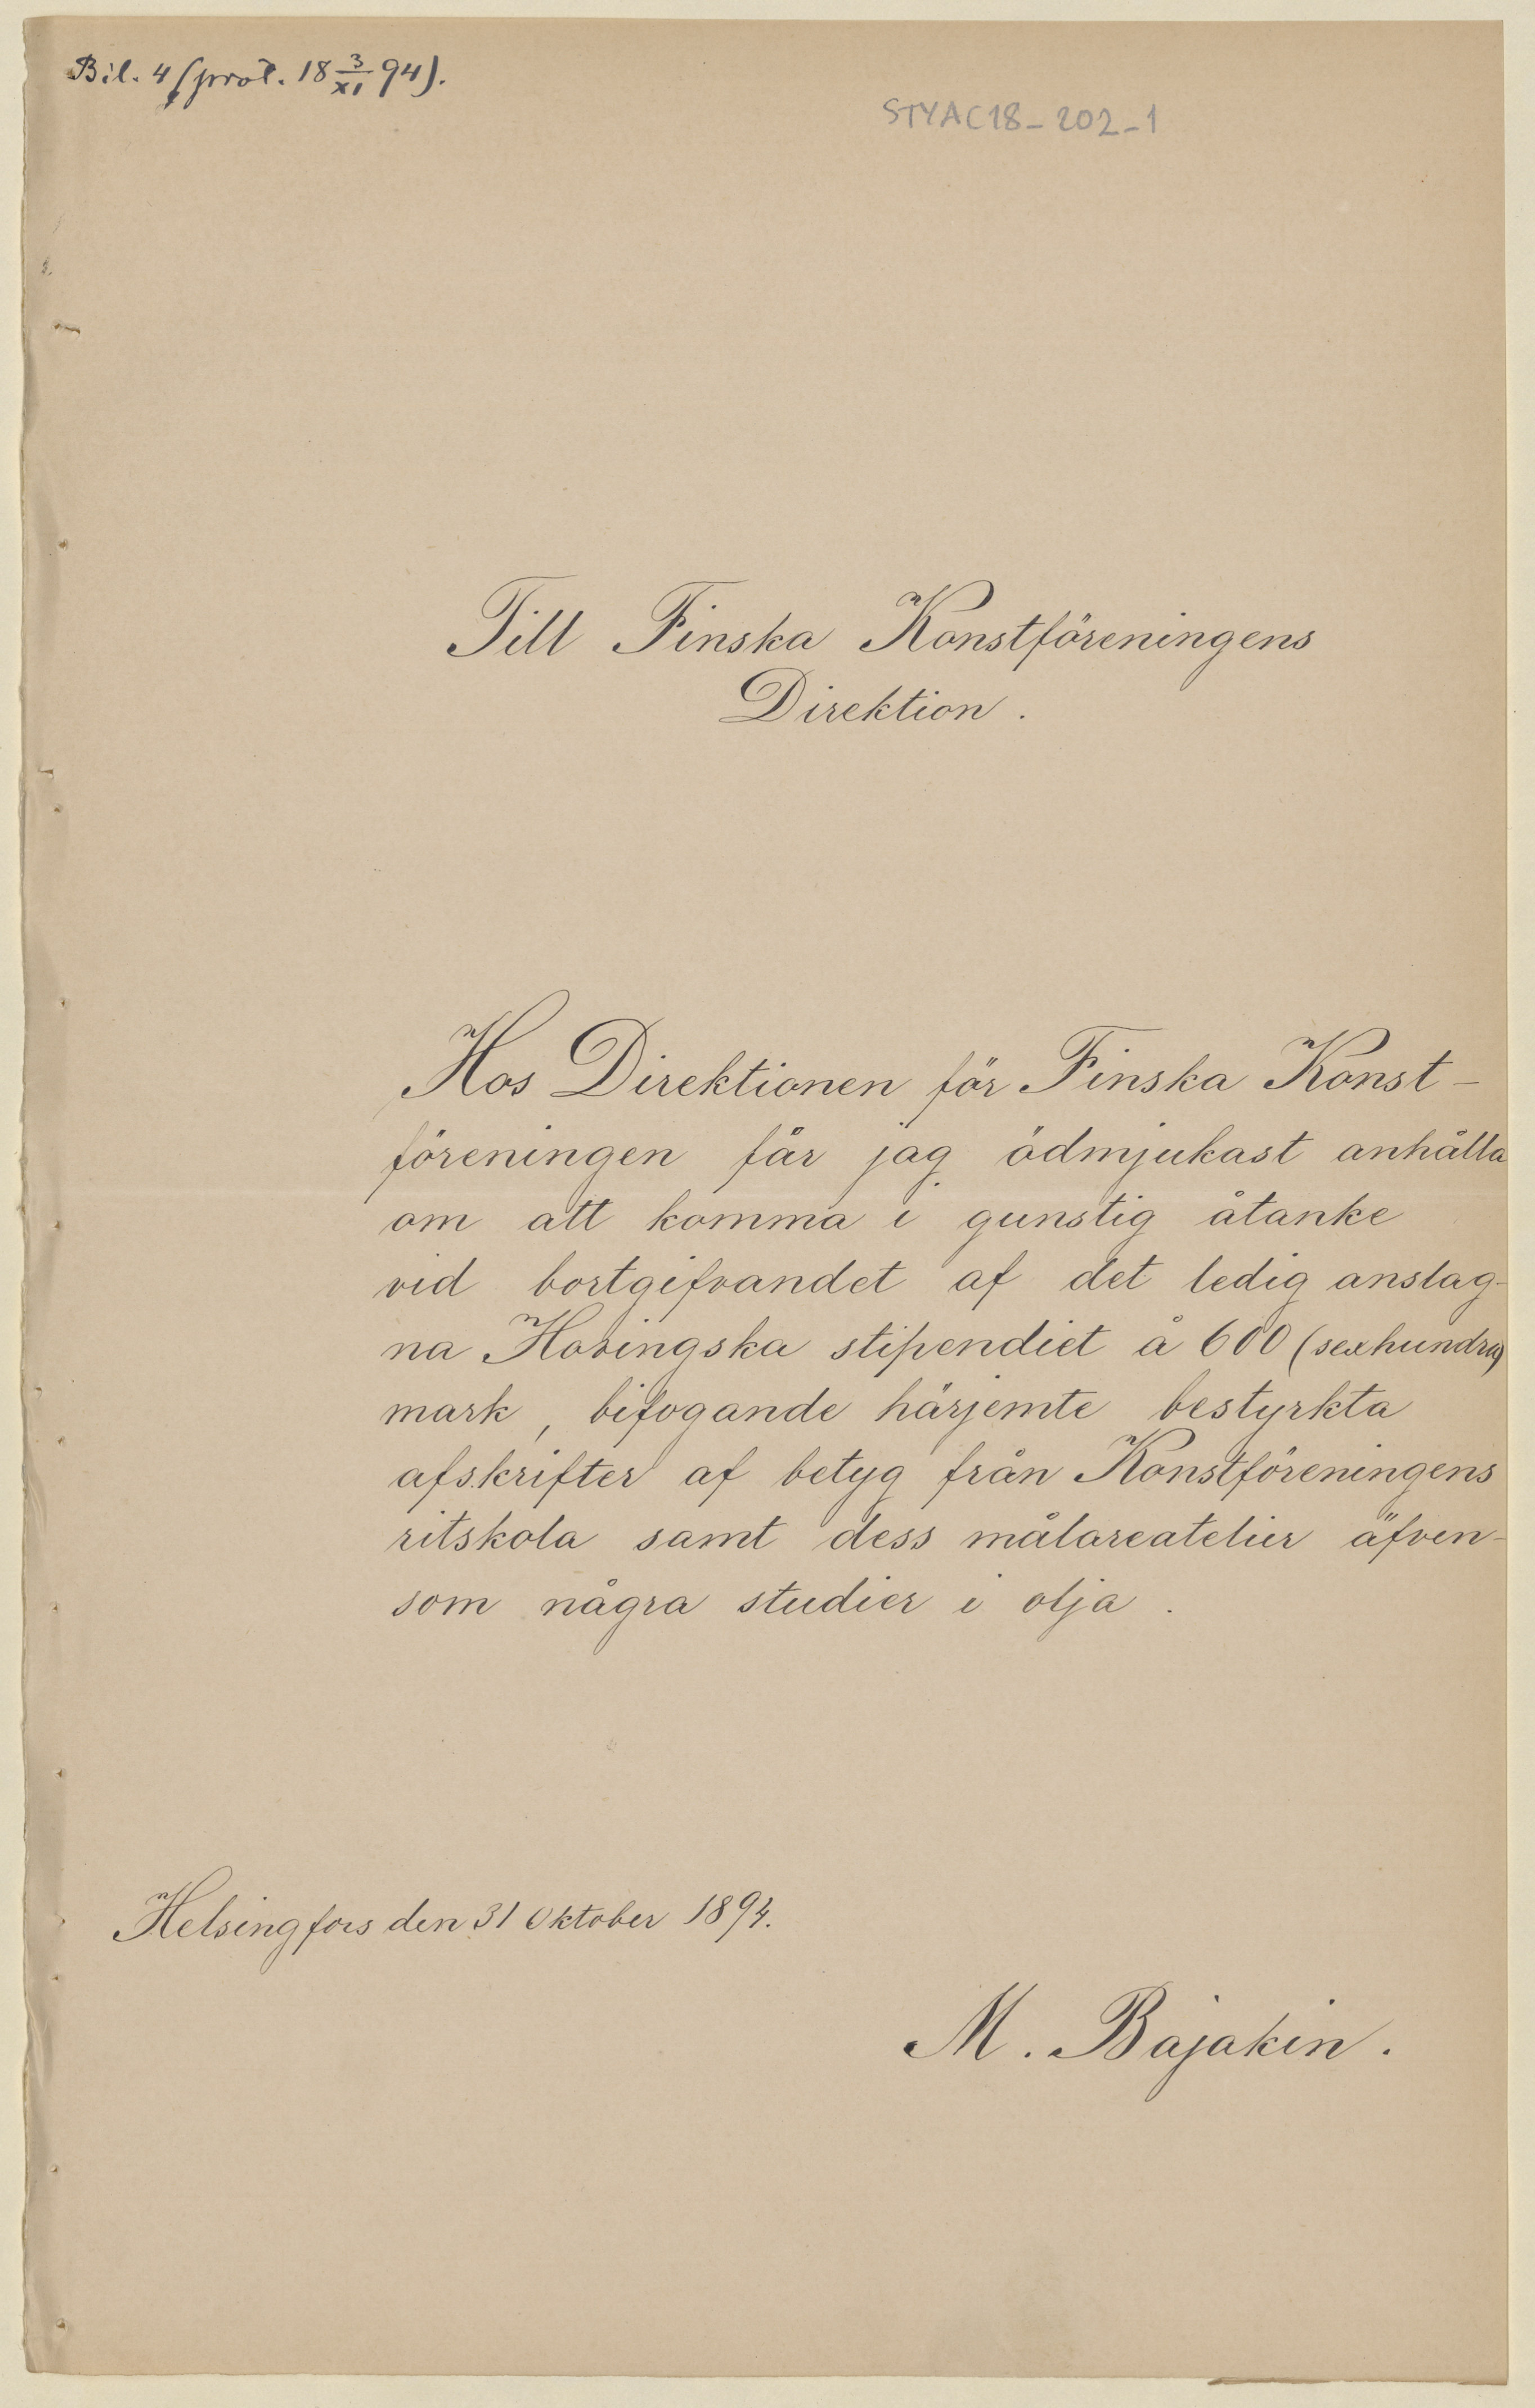 Bil. 4 (prot. 18 3/XI 94).
STYAC18-202-1
Till Finska Konstföreningens
Direktion.
Hos Direktionen för Finska Konst-
föreningen får jag ödmjukast anhålla
om att komma i gunstig åtanke
vid bortgifvandet af det ledig anslag-
na Hovingska stipendiet å 600 (sexhundra)
mark, bifogande härjemte bestyrkta
afskrifter af betyg från Konstföreningens
ritskola samt dess målareatelier äfven-
som några studier i olja.
Helsingfors den 31 Oktober 1894.
M. Bajakin.